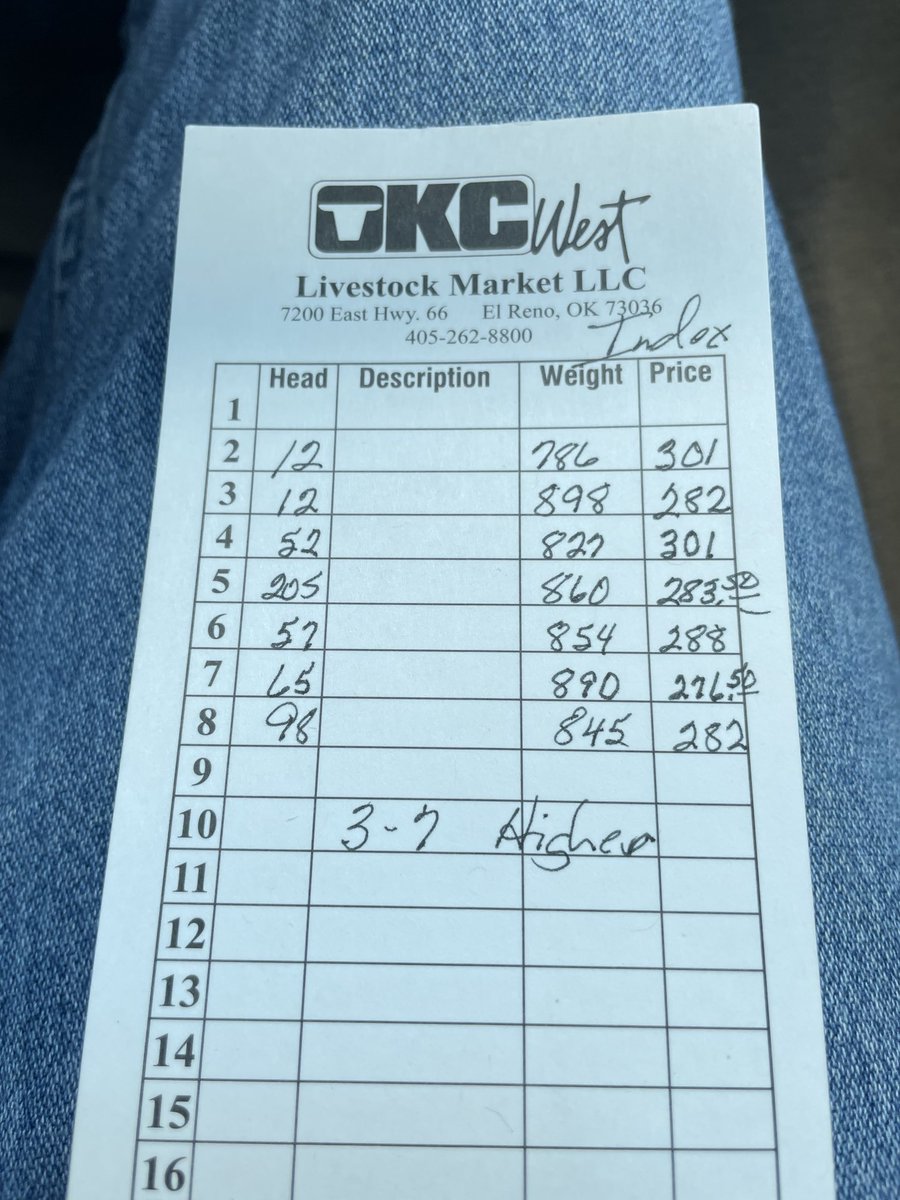 OKC West
Livestock Market LLC
7200 East Hwy. 66 El Reno, OK 73036
405-262-8800
Index
Head Description Weight Price
1
2 12 786 301
3 12 898 282
4 52 827 301
5 205 860 283.50
6 57 854 288
7 65 890 276.50
8 98 845 282
9
10 3-7 Higher
11
12
13
14
15
16